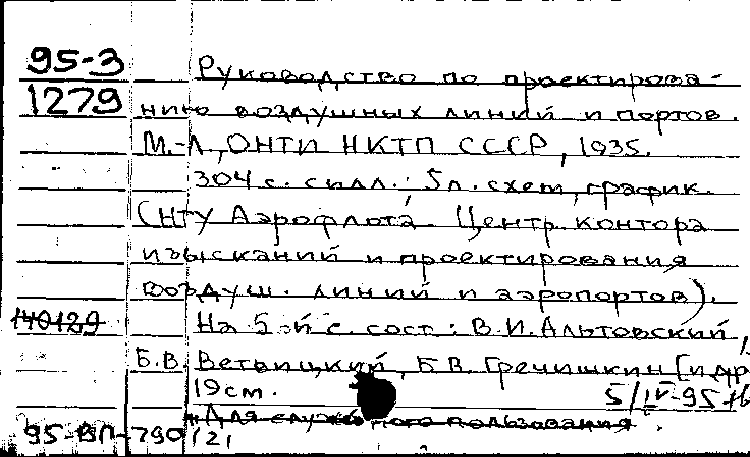 95-3
1279
Руководство по проектирова-
нию воздушных линий и портов.
М.-Л., ОНТИ НКТП СССР, 1935.
304 с. с илл.; 5 л. схем, график.
(НГУ Аэрофлота Центр. контора
изысканий и проектирования
воздуш. линий и аэропортов).
140129
На 5-й с. сост.: В.И. Альтовский,
Б.В. Ветвицкий, Б.В. Гречишкин [и др
19 см.
5/IV-95
Для служебного пользования.
95-ВП-790 121